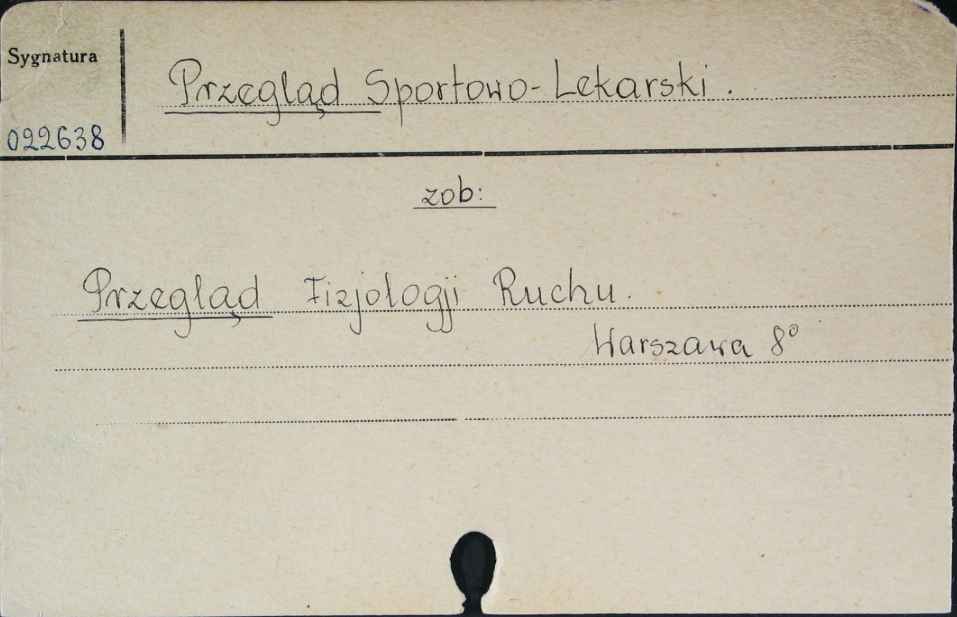 Sygnatura
Przegląd Sportowo-Lekarski.
022638
zob:
Przegląd Fizjologji Ruchu.
Warszawa 8°